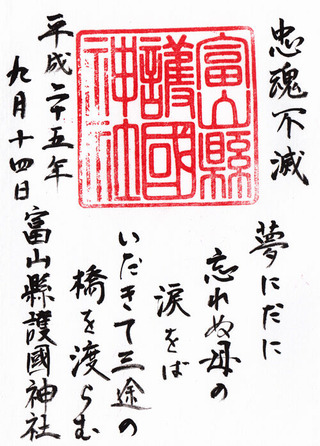 忠魂不滅
富山縣
護國
神社
夢にだに
忘れぬ母の
涙をば
いだきて三途の
橋を渡らむ
平成二十五年
九月十四日
富山縣護國神社